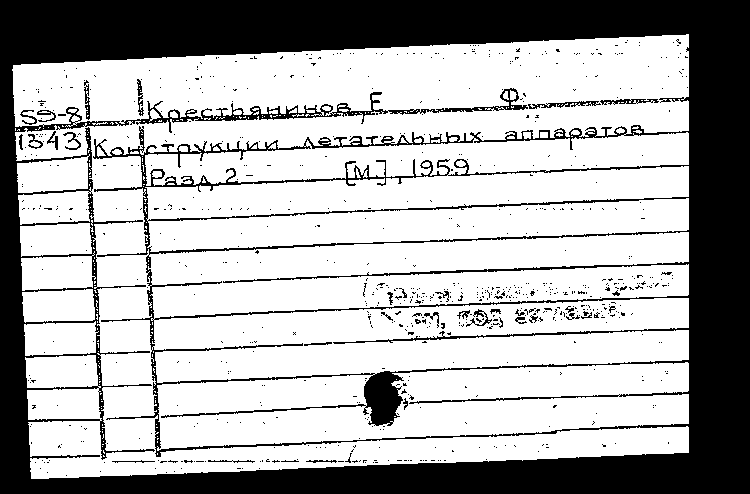 59-8 Крестьянинов, Е Ф.
1343 Конструкции летательных аппаратов
Разд 2- [М], 1959
см. под заглавие.